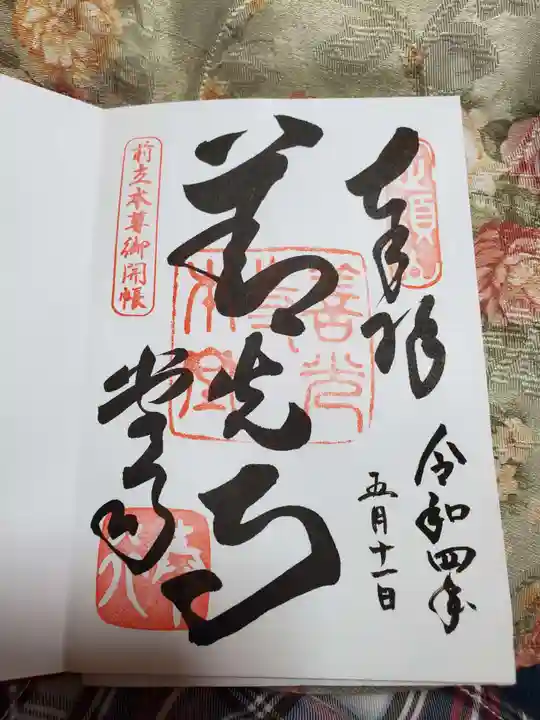 定額山
奉拝
令和四年
五月十一日
善光寺
善光寺本堂
前立本尊御開帳